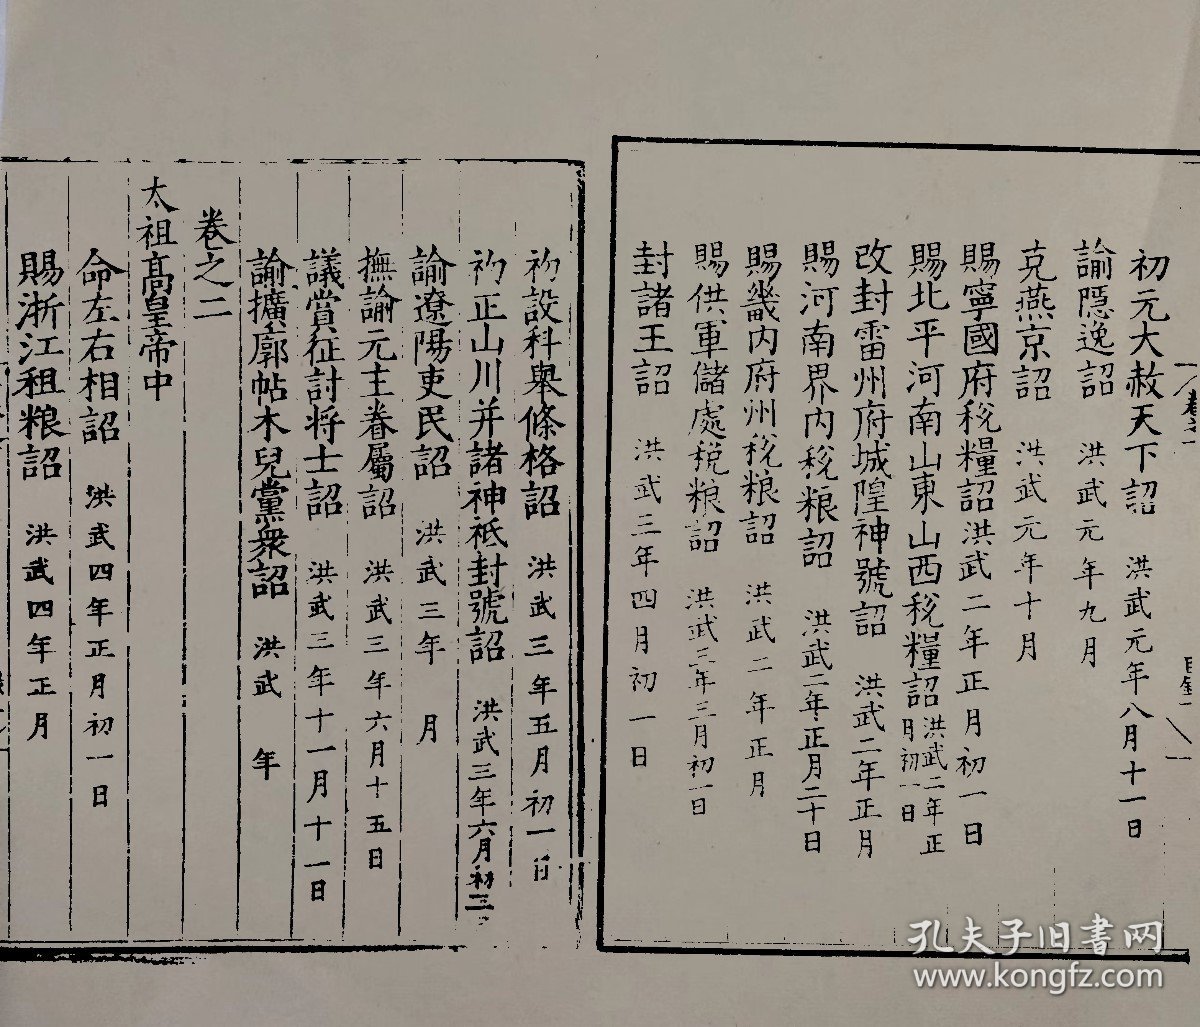 初元大赦天下詔 洪武元年八月十一日
諭隱逸詔 洪武元年九月
克燕京詔 洪武元年十月
賜寧國府稅糧詔 洪武二年正月初一日
賜北平河南山東山西稅糧詔 洪武二年正月初一日
改封雷州府城隍神號詔 洪武二年正月
賜河南界內稅粮詔 洪武二年正月二十日
賜畿內府州稅粮詔 洪武二年正月
賜供軍儲處稅粮詔 洪武三年三月初一日
封諸王詔 洪武三年四月初一日
初設科舉條格詔 洪武三年五月初一日
初正山川并諸神祇封號詔 洪武三年六月初三
諭遼陽吏民詔 洪武三年 月
撫諭元主眷屬詔 洪武三年六月十五日
議賞征討將士詔 洪武三年十一月十一日
諭擴廓帖木兒黨眾詔 洪武 年
卷之二
太祖高皇帝中
命左右相詔 洪武四年正月初一日
賜浙江租粮詔 洪武四年正月
孔夫子旧書网
www.kongfz.com